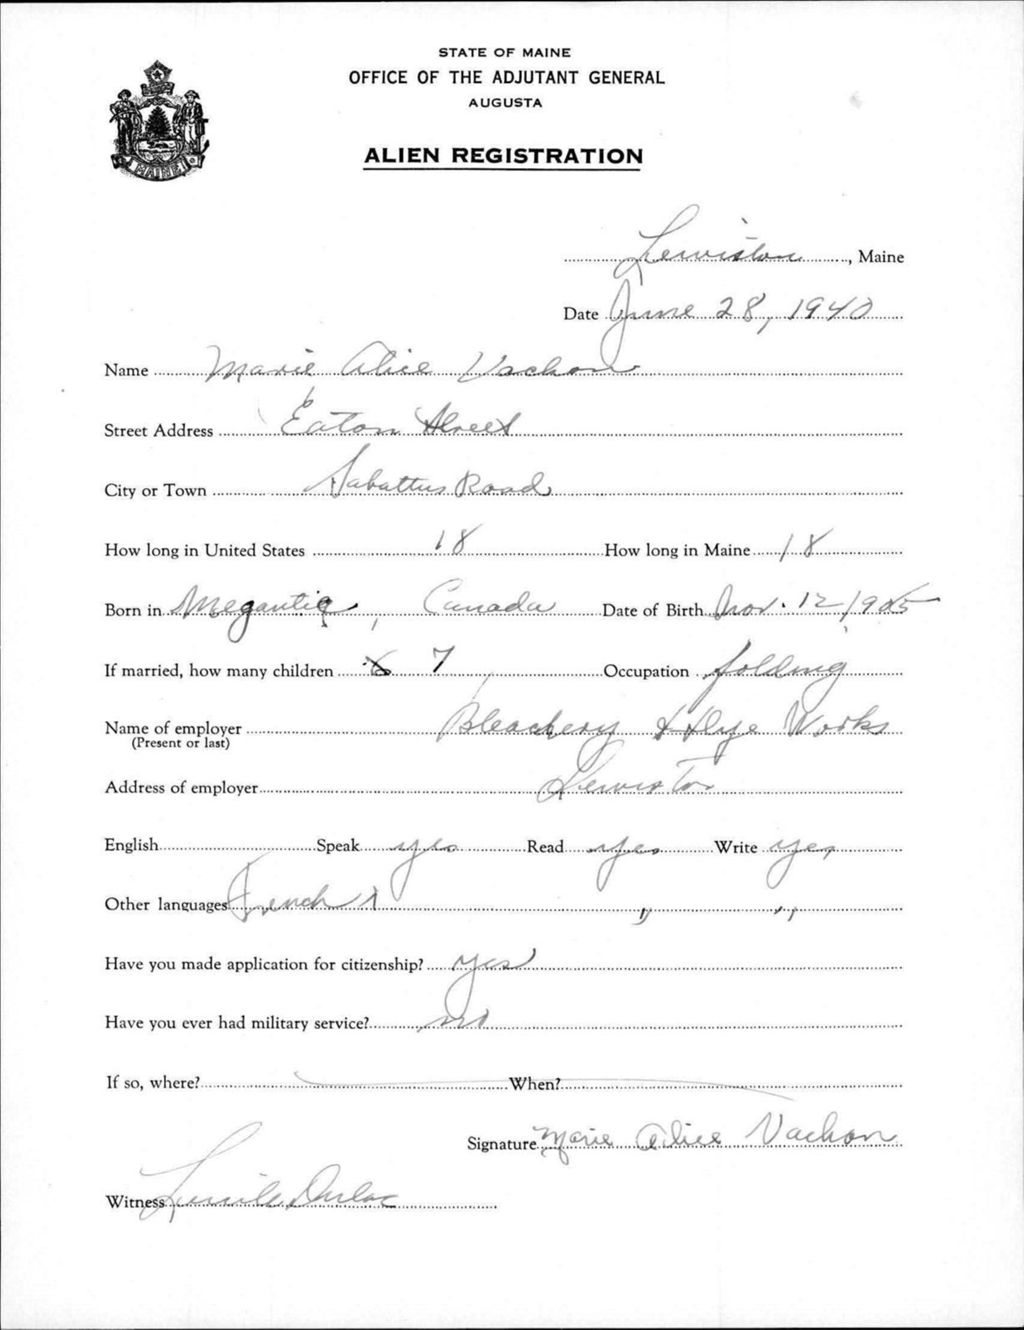 STATE OF MAINE
OFFICE OF THE ADJUTANT GENERAL
AUGUSTA
ALIEN REGISTRATION
MAINE
Lewiston, Maine
Date June 28, 1940
Name Marie Alice Vachon
Street Address Eaton Street
City or Town Sabattus Road
How long in United States 18 How long in Maine 18
Born in Megantic, Canada Date of Birth Nov. 12 1905
If married, how many children 6 7 Occupation folding
Name of employer Bleachery & Dye Works
(Present or last)
Address of employer Lewiston
English Speak yes Read yes Write yes
Other languages French " " "
Have you made application for citizenship? yes
Have you ever had military service? no
If so, where? When?
Signature Marie Alice Vachon
Witness Lucille